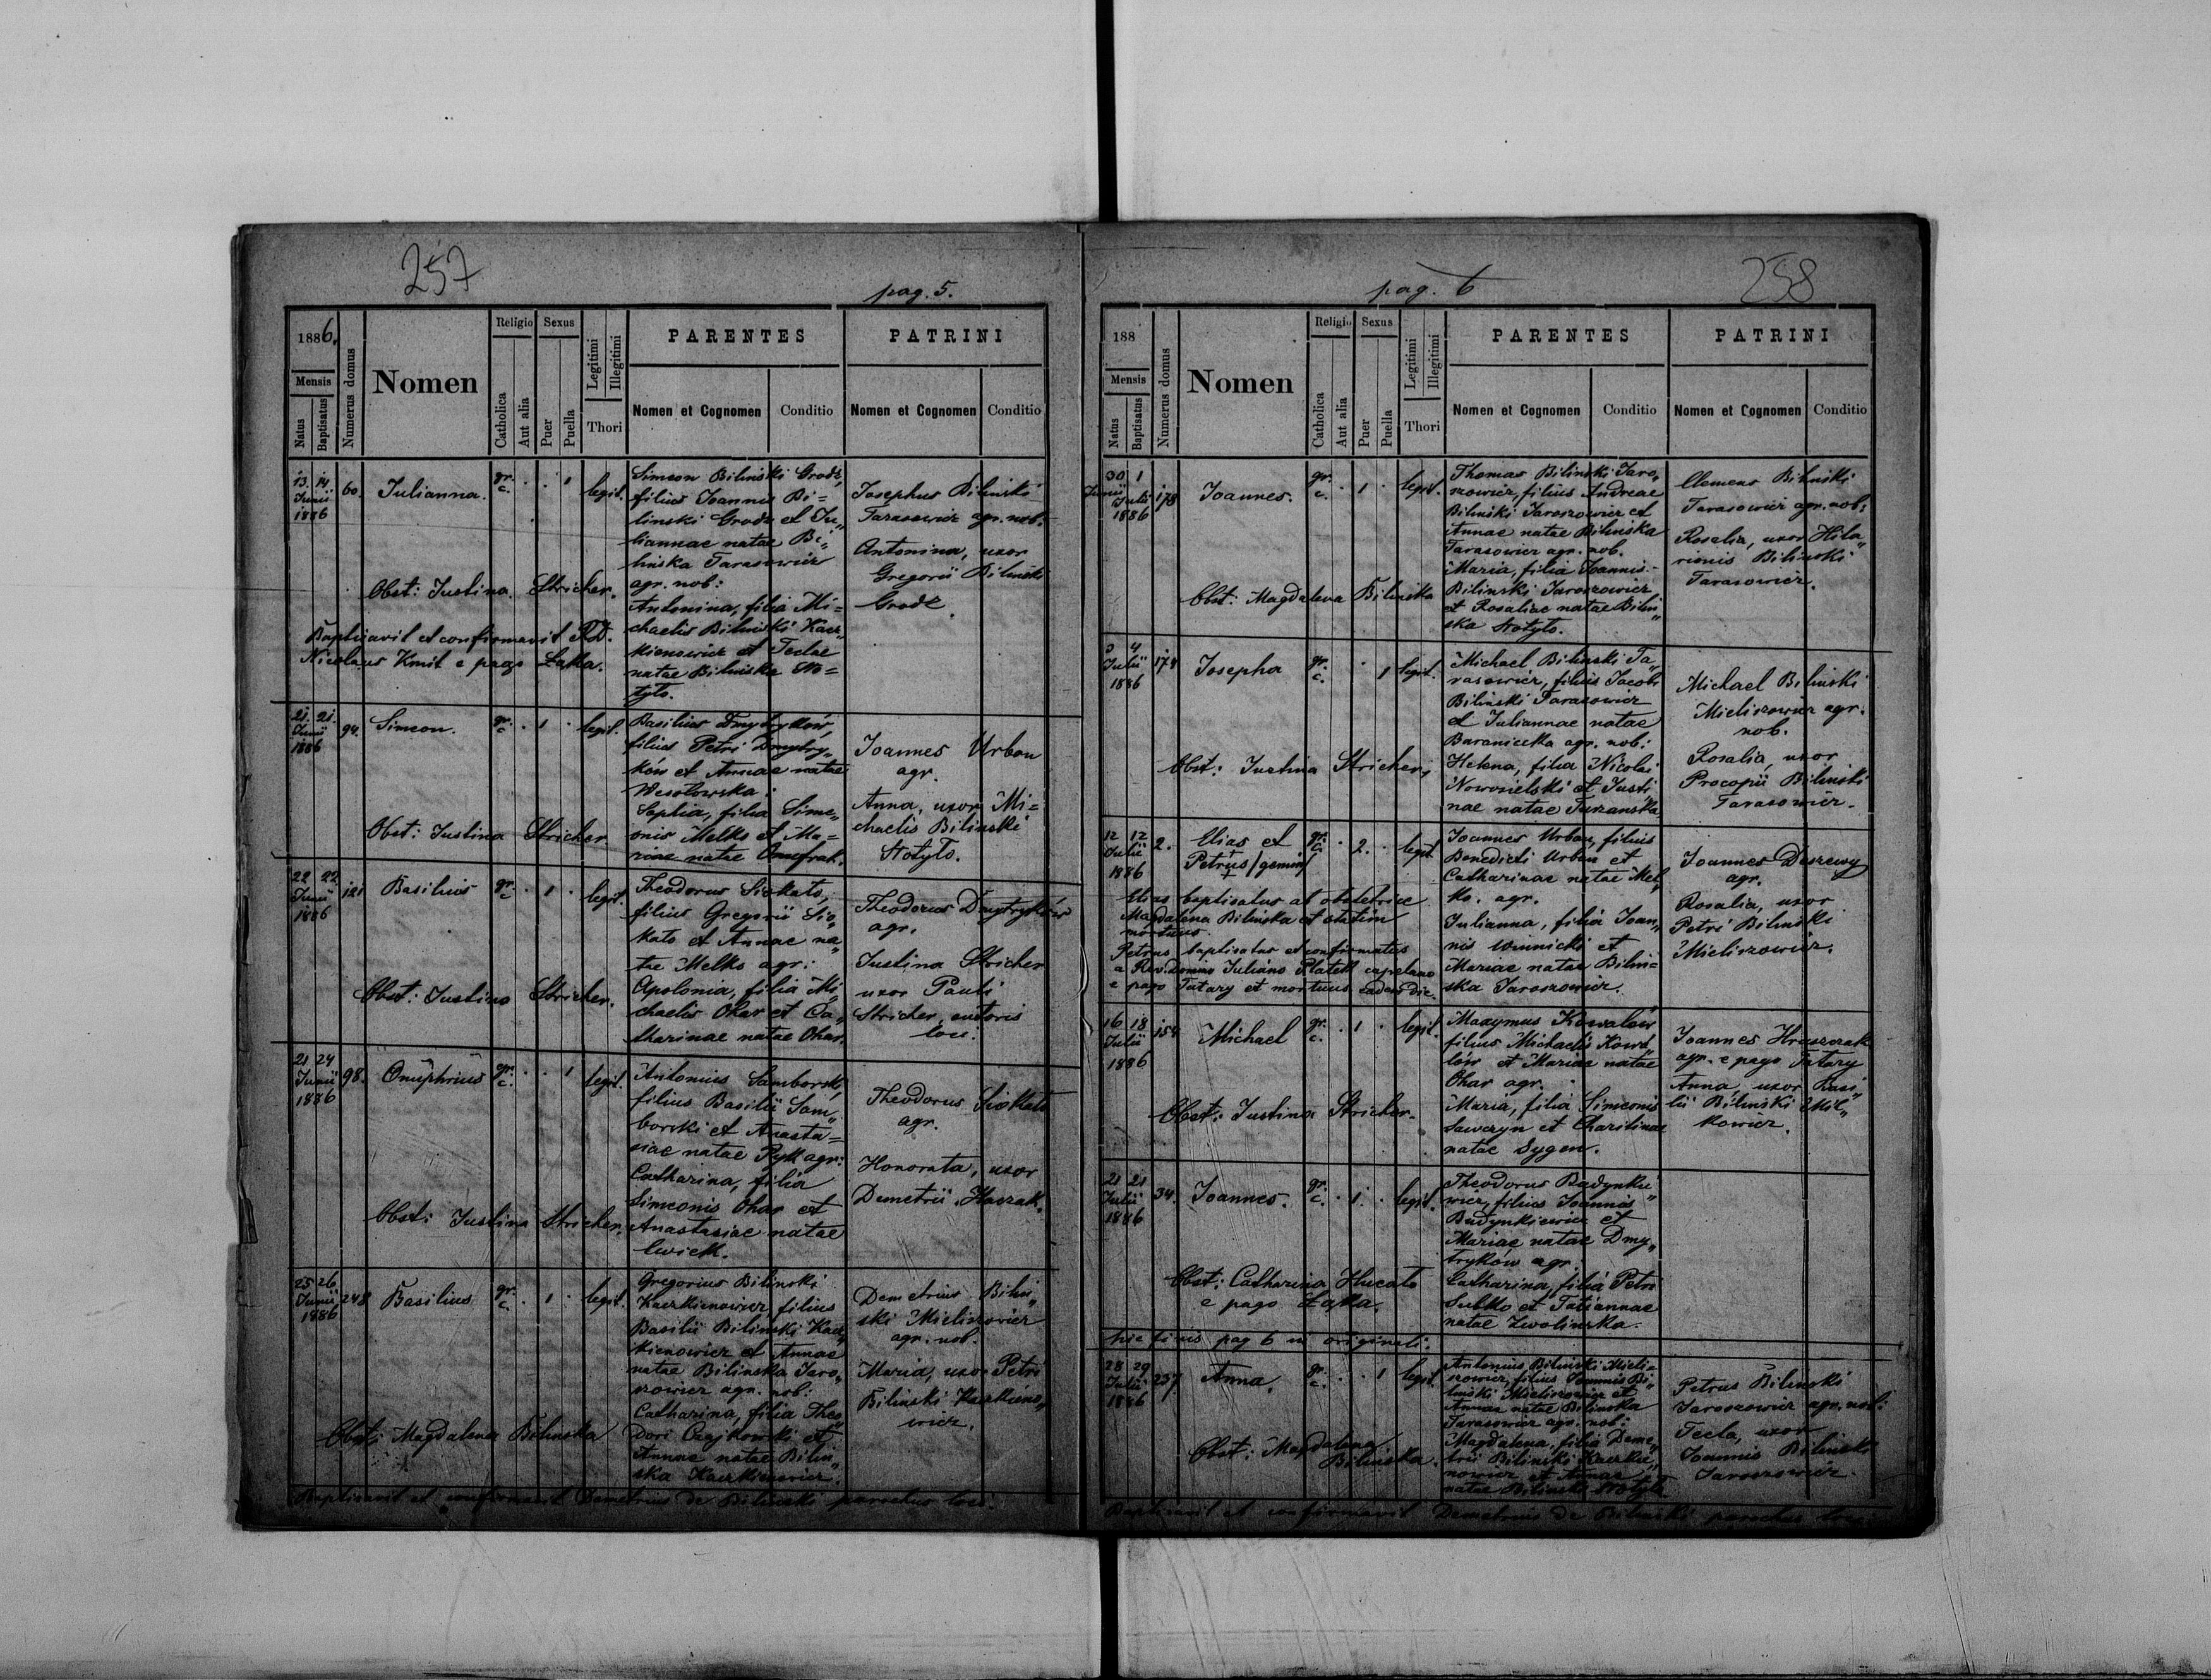 257
pag. 5.
1886.
Mensis
Natus
Baptisatus
Numerus domus
Nomen
Religio
Catholica
Aut alia
Sexus
Puer
Puella
Legitimi
Illegitimi
Thori
PARENTES
Nomen et Cognomen
Conditio
PATRINI
Nomen et Cognomen
Conditio
13. 14
Junii
1886
60.
Julianna.
gr.
c.
1
legit.
Simeon Bilinski Grodz,
filius Joannis Bi=
linski Grodz et Ju„
liannae natae Bi„
linska Tarasowicz
agr. nob:
Antonina, filia Mi=
chaelis Bilinski Kacz„
kienowicz et Teclae
natae Bilinska Sto=
tyto.
Josephus Bilinski
Tarasowicz agr. nob.
Antonina, uxor
Gregorii Bilinski
Grodz.
Obst: Justina Stricher.
Baptisavit et confirmavit Rd.
Nicolaus Kmit e pago Łąka.
21. 21.
Junii
1886
94.
Simeon.
gr.
c
1
legit.
Basilius Dmytryków,
filius Petri Dmytry„
ków et Annae natae
Wesołowska:
Sophia, filia Sime„
onis Melko et Ma=
riae natae Onufrak.
Joannes Urban
agr.
Anna, uxor Mi=
chaelis Bilinski
Stotyto.
Obst: Justina Stricher
22 22
Junii
1886
121
Basilius
gr.
c
1
legit.
Theodorus Siokato,
filius Gregorii Sio„
kato et Annae na„
tae Melko agr:
Apolonia, filia Mi„
chaelis Ohar et Ca„
tharinae natae Ohar.
Theodorus Dmytryków
agr.
Justina Stricher
uxor Pauli
Stricher, cantoris
loci.
Obst: Justina Stricher.
21 24
Junii
1886
98.
Onuphrius
gr.
c.
1
legit.
Antonius Samborski,
filius Basilii Sam„
borski et Anasta=
siae natae Pytl agr:
Catharina, filia
Simeonis Ohar et
Anastasiae natae
Cwiek.
Theodorus Siokato
agr.
Honorata, uxor
Demetrii Haszak.
Obst: Justina Stricher.
25 26
Junii
1886
248
Basilius
gr.
c.
1
legit.
Gregorius Bilinski
Kaczkienowicz filius
Basilii Bilinski Kacz„
kienowicz et Annae
natae Bilinska Jaro„
szowicz agr. nob:
Catharina, filia Theo„
dori Czajkowski et
Annae natae Bilin„
ska Kaczkienowicz.
Demetrius Bilin„
ski Mieliszowicz
agr. nob.
Maria, uxor Petri
Bilinski Kaczkieno„
wicz.
Obst: Magdalena Bilinska
Baptisavit et confirmavit Demetrius de Bilinski parochus loci.
258
pag. 6
188
Mensis
Natus
Baptisatus
Numerus domus
Nomen
Religio
Catholica
Aut alia
Sexus
Puer
Puella
Legitimi
Illegitimi
Thori
PARENTES
Nomen et Cognomen
Conditio
PATRINI
Nomen et Cognomen
Conditio
30 1
Junii Julii
1886
178
Joannes.
gr.
c.
1
legit.
Thomas Bilinski Jaro„
szowicz, filius Andreae
Bilinski Jaroszowicz et
Annae natae Bilinska
Tarasowicz agr. nob.
Maria, filia Joannis
Bilinski Jaroszowicz
et Rosaliae natae Bilin„
ska Stotyto.
Clemens Bilinski
Tarasowicz agr. nob:
Rosalia, uxor Hila„
rionis Bilinski
Tarasowicz.
Obst: Magdalena Bilinska
3 4
Julii
1886
174
Josepha
gr.
c.
1
legit.
Michael Bilinski Ta„
rasowicz, filius Jacobi
Bilinski Tarasowicz
et Juliannae natae
Baraniecka agr. nob:
Helena, filia Nicolai
Nowosielski et Justi„
nae natae Turzanska
Michael Bilinski
Mieliszowicz agr.
nob.
Rosalia, uxor
Procopii Bilinski
Tarasowicz.
Obst: Justina Stricher,
12 12
Julii
1886
2.
Elias et
Petrus /gemini/
gr.
c.
2.
legit
Joannes Urban, filius
Benedicti Urban et
Catharinae natae Mel„
ko. agr.
Julianna, filia Joan„
nis Winnicki et
Mariae natae Bilin=
ska Jaroszowicz.
Joannes Deszewy
agr.
Rosalia, uxor
Petri Bilinski
Mieliszowicz.
Elias baptisatus ab obstetrice
Magdalena Bilinska et statim
mortuus.
Petrus baptisatus et confirmatus
a Rev. Domino Juliano Płatek capelano
e pago Tatary et mortuus eadem die.
16 18
Julii
1886
154
Michael
gr.
c.
1
legit.
Maxymus Kowalów
filius Michaelis Kowa„
lów et Mariae natae
Ohar agr.
Maria, filia Simeonis
Saweryn et Charitinae
natae Sygen.
Joannes Hruszczak
agr. e pago Tatary
Anna, uxor Basi„
lii Bilinski Mil„
kowicz.
Obst: Justina Stricher.
21 21
Julii
1886
34.
Joannes.
gr.
c.
1.
legit.
Theodorus Budynkie„
wicz, filius Joannis
Budynkiewicz et
Mariae natae Dmy„
tryków agr.
Catharina, filia Petri
Subko et Tatiannae
natae Zwolinska.
Obst: Catharina Hucato
e pago Łąka.
hic finis pag 6 in originali.
28 29
Julii
1886
237
Anna.
gr.
c.
1
legit.
Antonius Bilinski Mieli=
szowicz, filius Joannis Bi„
linski Mieliszowicz et
Annae natae Bilinska
Tarasowicz agr. nob:
Magdalena, filia Deme„
trii Bilinski Kaczkie„
nowicz et Annae
natae Bilinska Stotyto
Petrus Bilinski
Jaroszowicz agr. nob:
Tecla, uxor
Joannis Bilinski
Jaroszowicz.
Obst: Magdalena
Bilinska.
Baptisavit et confirmavit Demetrius de Bilinski parochus loci.